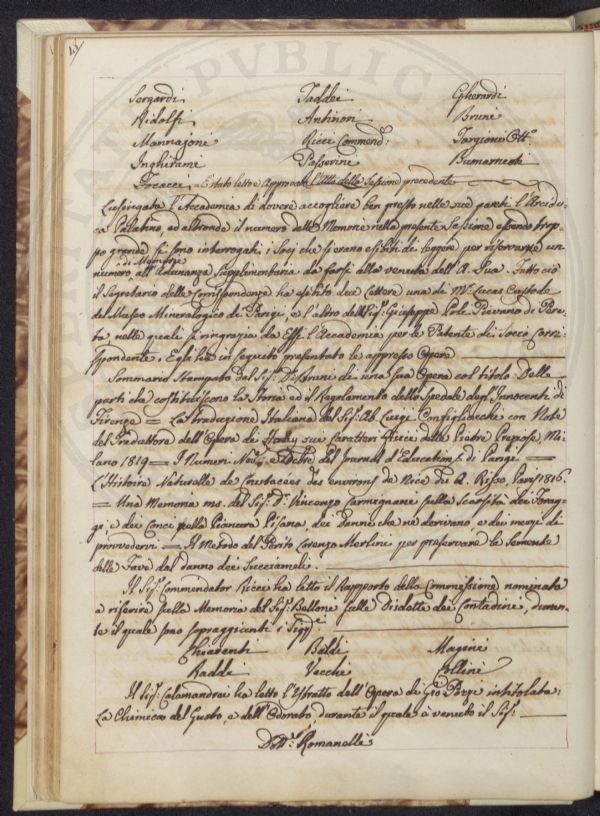 Sergardi Taddei Gherardi
Ridolfi Antinori Bruni
Mannajoni Ricci Commend.e Targioni Ott.o
Inghirami Passerini Bumamenti
Focacci, È stato letto e Approvato l'Atto della Sessione precedente
Lusingata l'Accademia di dovere accogliere ben presto nelle sue pareti l'Arcidu-
ca Palatino, ed altronde il numero delle Memorie nella presente Sessione essendo trop-
po grande si sono interrogati i Socj che si erano esibiti di leggere per riservarne un
di Memorie
numero all'Adunanza Supplementaria da farsi alla venuta dell'A. Sua. Fatto ciò
il Segretario delle Corrispondenze ha esibito due Lettere una di Mr. Lucas Custode
del Museo Mineralogico di Parigi, e l'altra dell Sig.r Giuseppe Poli Pievano di
ta, nelle quali si ringrazia da Essi l'Accademia per le Patente di Socio Corri-
spondente. Egli ha in seguito presentato le appresso Opere
Sommario Stampato del Sig.r D.r Bruni di una sua Opera col titolo: Delle
parti che costituiscono la Storia ed il Regolamento dello Spedale degl'Innocenti di
Firenze = La traduzione Italiana del Sig.r Ab. Luigi Configliacchi con Note
del Traduttore dell'Opera di Haüy sui Caratteri fisici delle Pietre Preziose Mi-
lano 1819 = I Numeri Nov.e e Dcbre del Journal d'Education &. di Parigi =
L'Histoire Naturelle de Crustacées des environs de Nice di A. Risso, Paris 1816.
= Una Memoria ms. del Sig.r D.r Vincenzo Carmignani sulla Scarsità dei Forag-
gi, e dei Conci nella Pianura Pisana, dei danni che ne derivano, e dei mezzi di
provvedervi = Il Metodo del Perito Lorenzo Merlini per preservare la Sementa
delle Fave dal danno dei Succiameli.
Il Sig.r Commendator Ricci ha letto il Rapporto della Commissione nominata
a riferire sulla Memoria del Sig.r Bellone sulle Disdette dei Contadini, duran-
te il quale sono sopraggiunti i Sig.ri
Chiarenti Baldi Magini
Raddi Vecchi Pollini
Il Sig.r Calamandrei ha letto l'Estratto dell'Opera di Gio Pozzi intitolata:
La Chimica del Gusto, e dell'Odorato, durante il quale è venuto il Sig.r
Dott.r Romanelli